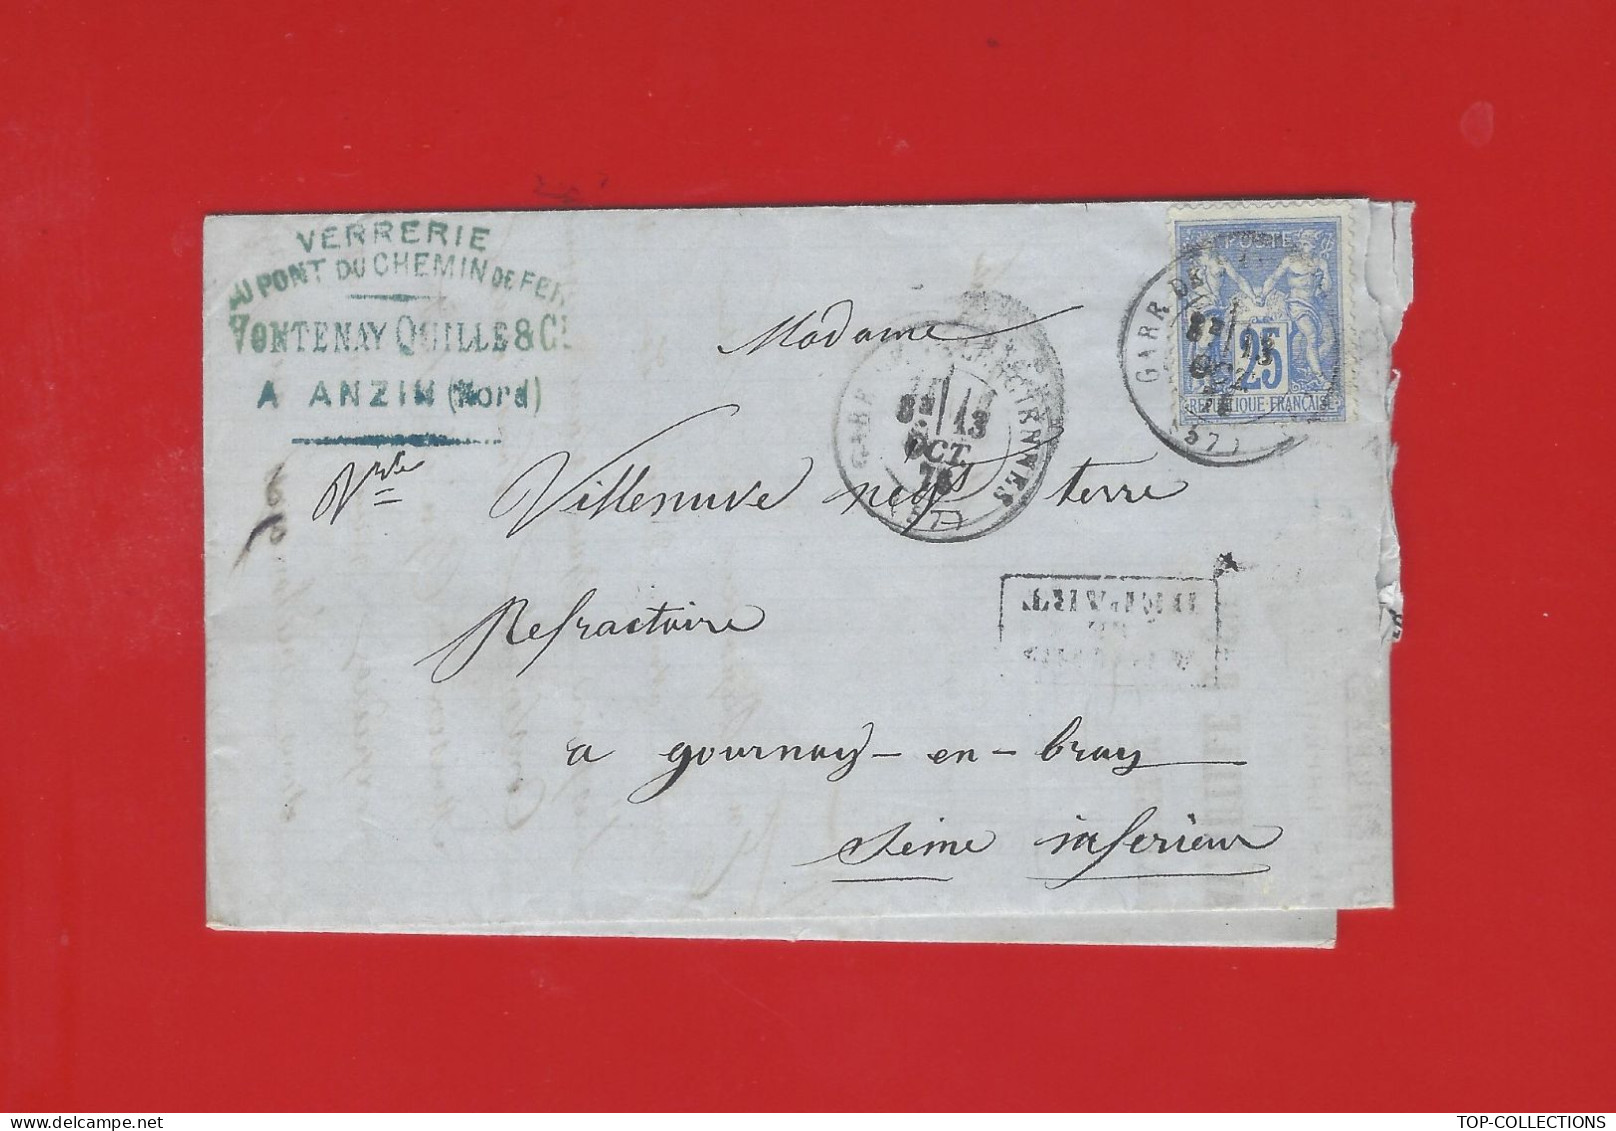 VERRERIE
AU PONT DU CHEMIN DE FER
FONTENAY QUILLE & Cie
A ANZIN (Nord)
POSTE
25
REPUBLIQUE FRANCAISE
GARE DE
(57)
Madame
GARE DE VALENCIENNES
8E 13
OCT.
78
(57)
Vve Villenuve negt terre
Refractaire
a gournay-en-bray
Seine inferieur
TOP-COLLECTIONS